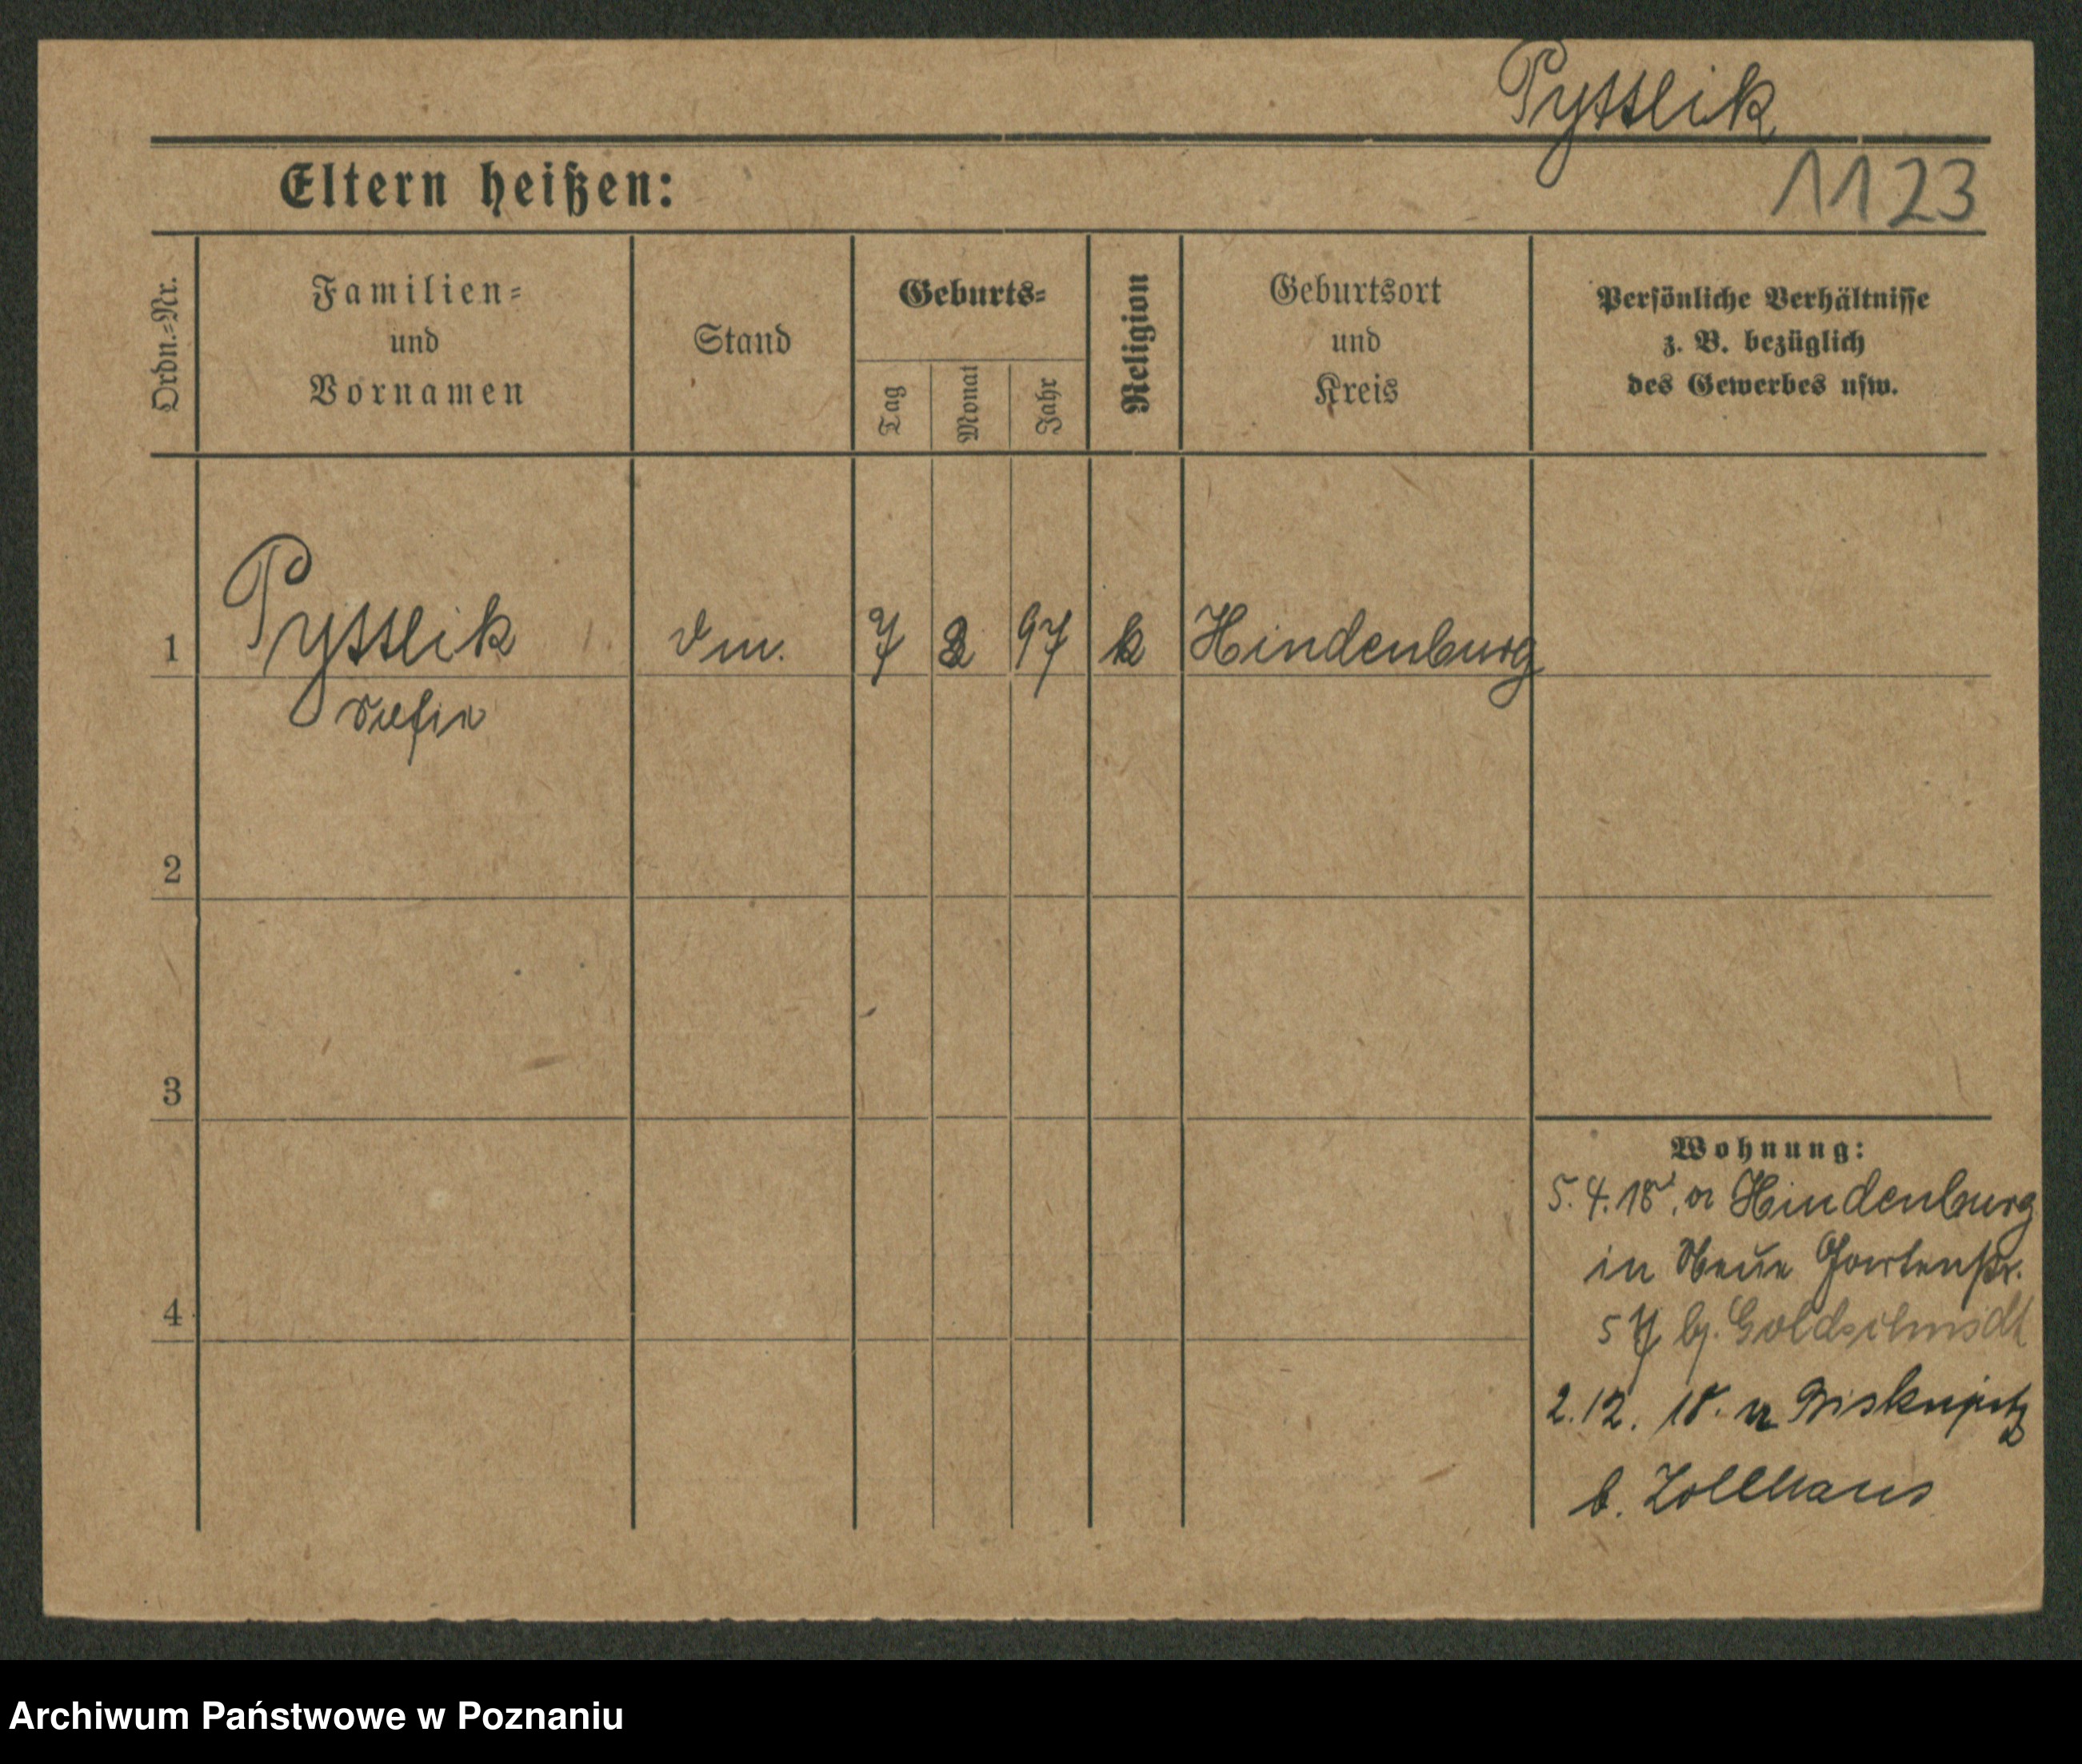 Pyttlik
1123
Eltern heißen:
Ordn.=Nr.
Familien=
und
Vornamen
Stand
Geburts=
Tag
Monat
Jahr
Religion
Geburtsort
und
Kreis
Persönliche Verhältnisse
z. B. bezüglich
des Gewerbes usw.
1 Pyttlik 7 2 97 k Hindenburg
2
3
4
Wohnung:
5.4.18. Hindenburg
in Neue Gartenstr.
57 bj. Goldschmidt
2.12. 18. Biskupitz
b. Zollhaus
Archiwum Państwowe w Poznaniu